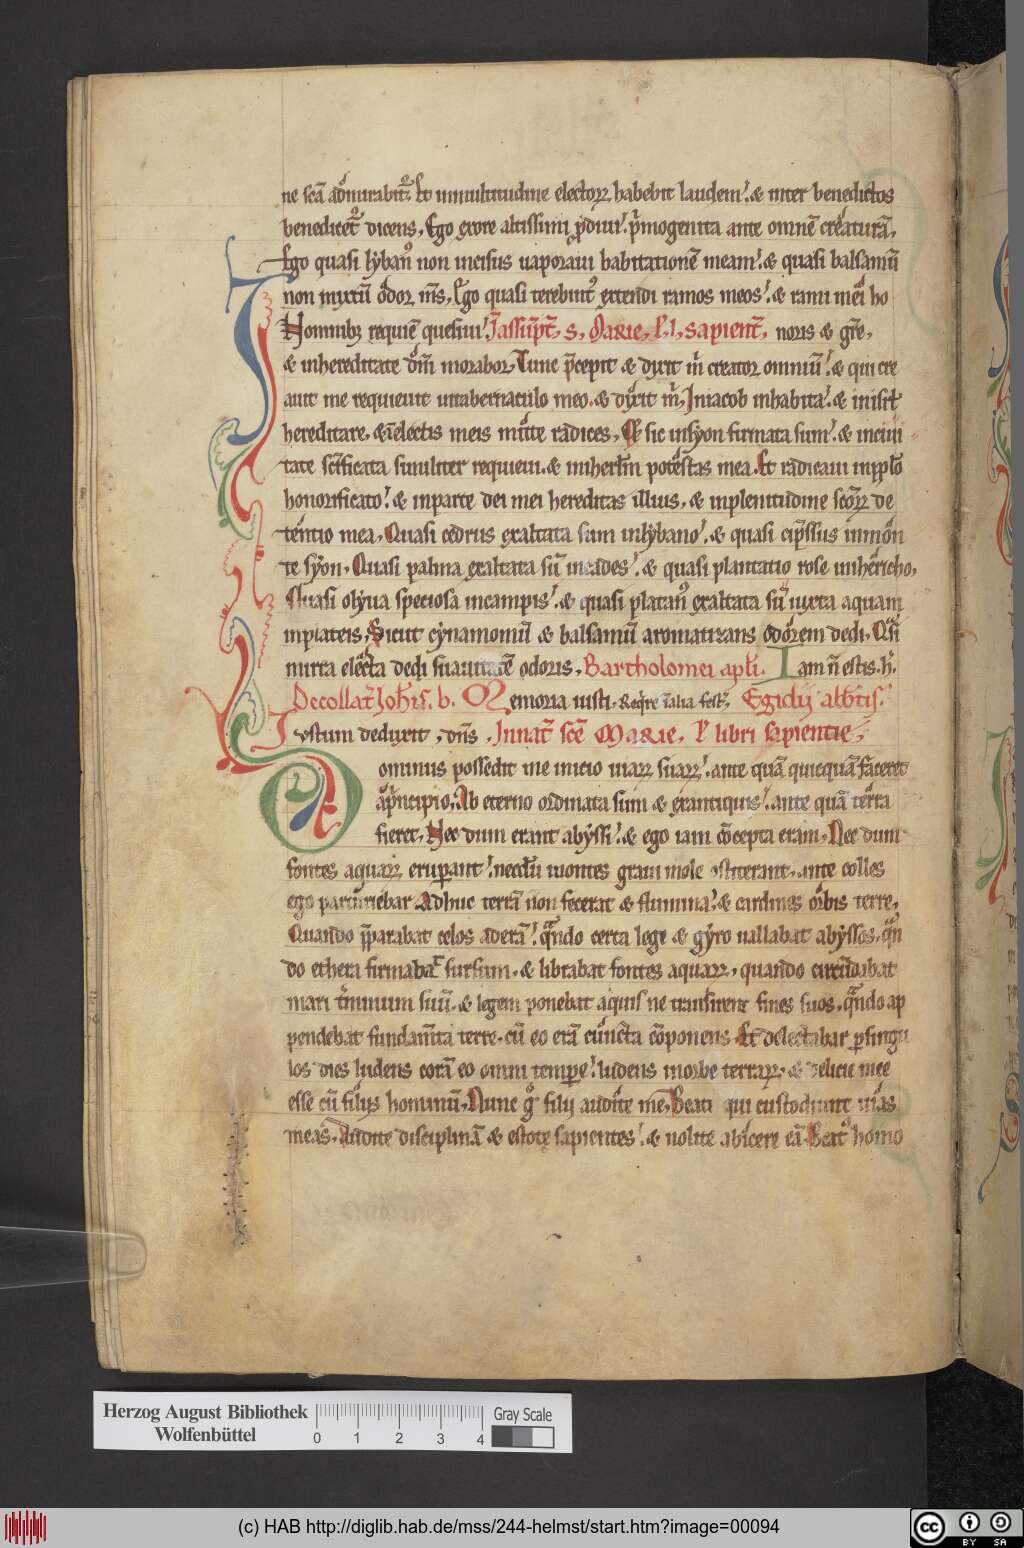 ne scā admirabit᷑. Et inmultitudine electoꝝ habebit laudem. & inter benedictos
benedicet᷑ dicens. Ego exore altissimi ꝓdiui. p̄mogenita ante omnē creaturā.
Ego quasi lẏbanꝰ non incisus uaporaui habitationē meam. & quasi balsamū
non mixtū odor m̄s. Ego quasi terebintꝰ extendi ramos meos. & rami mei ho
Nomnibꝫ requiē quesiui. Jassūpt̄. s. Marie. l. sapient̄. noris & gr̄e.
& inhereditate dn̄i morabor. Tunc p̄cepit & dixit m̄ creator omniū. & qui cre
auit me requieuit intabernaculo meo. & dixit m̄. Iniacob inhabita. & inisrl̄
hereditare. & īelectis meis mitte radices. Et sic insyon firmata sum. & inciui
tate sc̄ificata similiter requieui. & inherl̄m potestas mea. Et radicaui inpp̄lo
honorificato. & inparte dei mei hereditas illius. & inplenitudine sc̄oꝝ de
tentio mea. Quasi cedrus exaltata sum inlẏbano. & quasi cip̄ssus inmon
te sẏon. Quasi palma exaltata sū incades. & quasi plantatio rose inihericho.
Quasi olyua speciosa incampis. & quasi platanꝰ exaltata sū iuxta aquam
inplateis. Sicut cẏnamomū & balsamū aromatizans odorem dedi. Qᵃsi
mirra electa dedi suauitatē odoris. Bartholomei apl̄i. Iam ñ estis. h̄.
Decollat̄ Joh̄is. b. Memoria iusti. Reqͥre īalia fest̄. Egidij abb̄tis.
Iustum deduxit. dn̄s. Innat̄ sc̄e Marie. l̄ libri sapientie.
Dominus possedit me inicio uiaꝝ suaꝝ. ante quā quicquā faceret
ap̄ncipio. Ab eterno ordinata sum & exantiquis. ante quā terra
fieret. Nec dum erant abẏssi. & ego iam cōcepta eram. Nec dum
fontes aquaꝝ eruꝑant. necdū montes graui mole ɔstiterant. ante colles
ego parturiebar. Adhuc terrā non fecerat & flumina. & cardines orbis terre.
Quando p̄parabat celos aderā. qᵃndo certa lege & gẏro uallabat abẏssos. qᵃn
do ethera firmabat sursum. & librabat fontes aquaꝝ. quando circūdabat
mari t̄minum suū. & legem ponebat aquis ne transirent fines suos. qᵃndo ap
pendebat fundam̄ta terre. cū eo erā cuncta cōponens. Et delectabar ꝑsingu
los dies ludens corā eo omni tempore. ludens inorbe terraꝝ. & delicie mee
esse cū filijs hominū. Nunc gͦ filij audite me. Beati qui custodiunt uias
meas. Audite disciplinā & estote sapientes. & nolite abicere eā. Beatꝰ homo
Herzog August Bibliothek
Wolfenbüttel
0 1 2 3 4
Gray Scale
(c) HAB http://diglib.hab.de/mss/244-helmst/start.htm?image=00094
cc BY SA